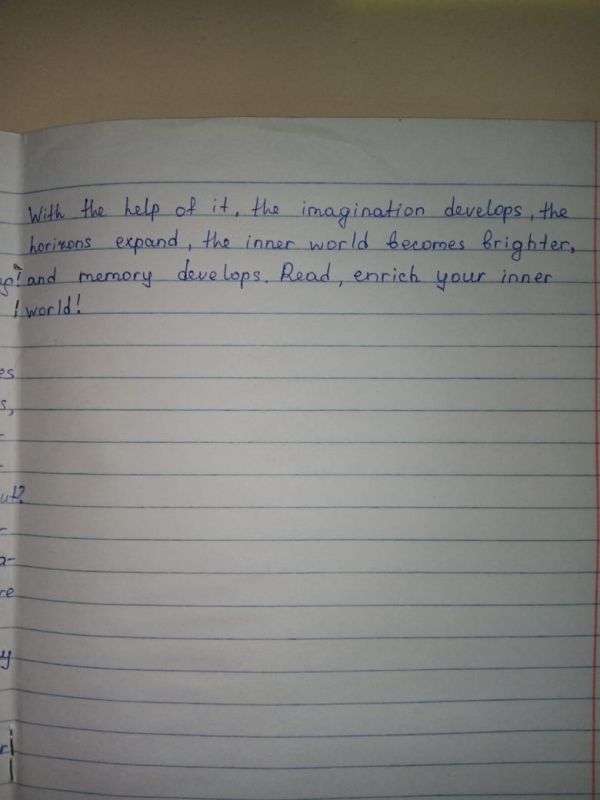 With the help of it, the imagination develops, the
horizons expand, the inner world becomes brighter,
and memory develops. Read, enrich your inner
world!
es
s,
ut?
a-
re
y